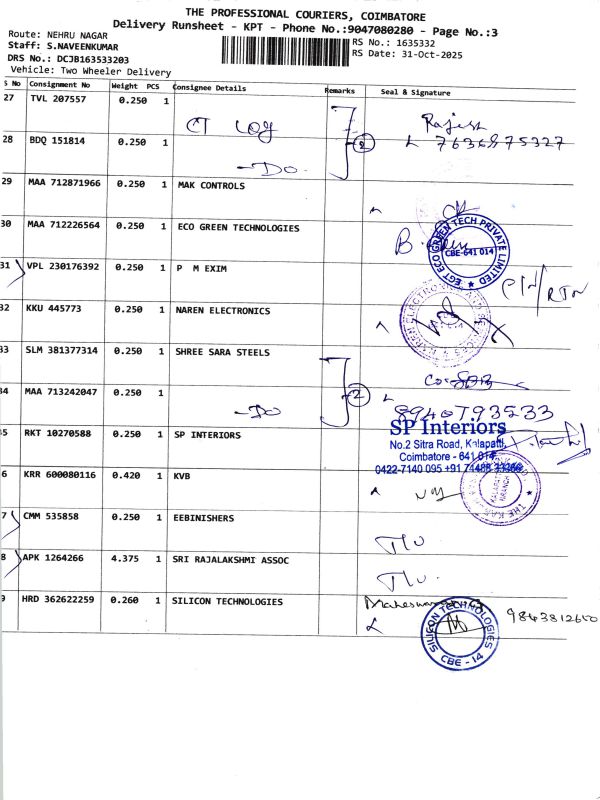 THE PROFESSIONAL COURIERS, COIMBATORE
Delivery Runsheet - KPT - Phone No.:9047080280 - Page No.:3
Route: NEHRU NAGAR
Staff: S.NAVEENKUMAR
RS No.: 1635332
DRS No.: DCJB163533203
RS Date: 31-Oct-2025
Vehicle: Two Wheeler Delivery
S No Consignment No Weight PCS Consignee Details Remarks Seal & Signature
27 TVL 207557 0.250 1 CT Log Rajesh
28 BDQ 151814 0.250 1 -Do. 2
29 MAA 712871966 0.250 1 MAK CONTROLS
30 MAA 712226564 0.250 1 ECO GREEN TECHNOLOGIES
EGT ECO GREEN TECH PRIVATE LIMITED
CBE-641 014
31 VPL 230176392 0.250 1 P M EXIM
RTN
32 KKU 445773 0.250 1 NAREN ELECTRONICS
33 SLM 381377314 0.250 1 SHREE SARA STEELS
34 MAA 713242047 0.250 1 -Do 2
8940793533
35 RKT 10270588 0.250 1 SP INTERIORS
SP Interiors
No.2 Sitra Road, Kalapatti,
Coimbatore - 641 014
0422-7140 095
6 KRR 600080116 0.420 1 KVB
7 CMM 535858 0.250 1 EEBINISHERS
8 APK 1264266 4.375 1 SRI RAJALAKSHMI ASSOC
9 HRD 362622259 0.260 1 SILICON TECHNOLOGIES
SILICON TECHNOLOGIES
CBE - 14